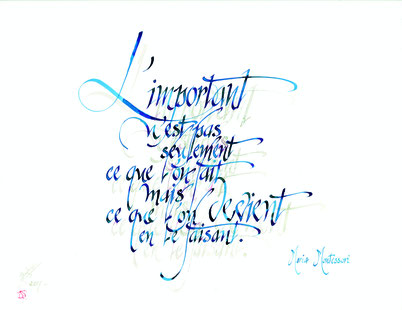 L'important
n'est pas
seulement
ce que l'on fait
mais
ce que l'on devient
en le faisant.
Maria Montessori